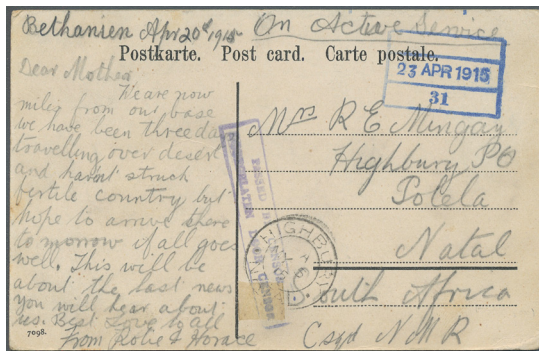 Bethanien Apr 20th 1915
On Active Service
Postkarte. Post card. Carte postale.
23 APR 1915
31
Dear Mother
We are now
miles from our base
we have been three da
travelling over desert
and havnt struck
fertile country but
hope to arrive there
to morrow if all goes
well. This will be
about the last news
you will hear about
us. Best Love to all
From Rolie & Horace
7098.
PASSED B
CENSOR
HIGHB
Mrs R E Mingay
Highbury PO
Polela
Natal
South Africa
C sqd N M R